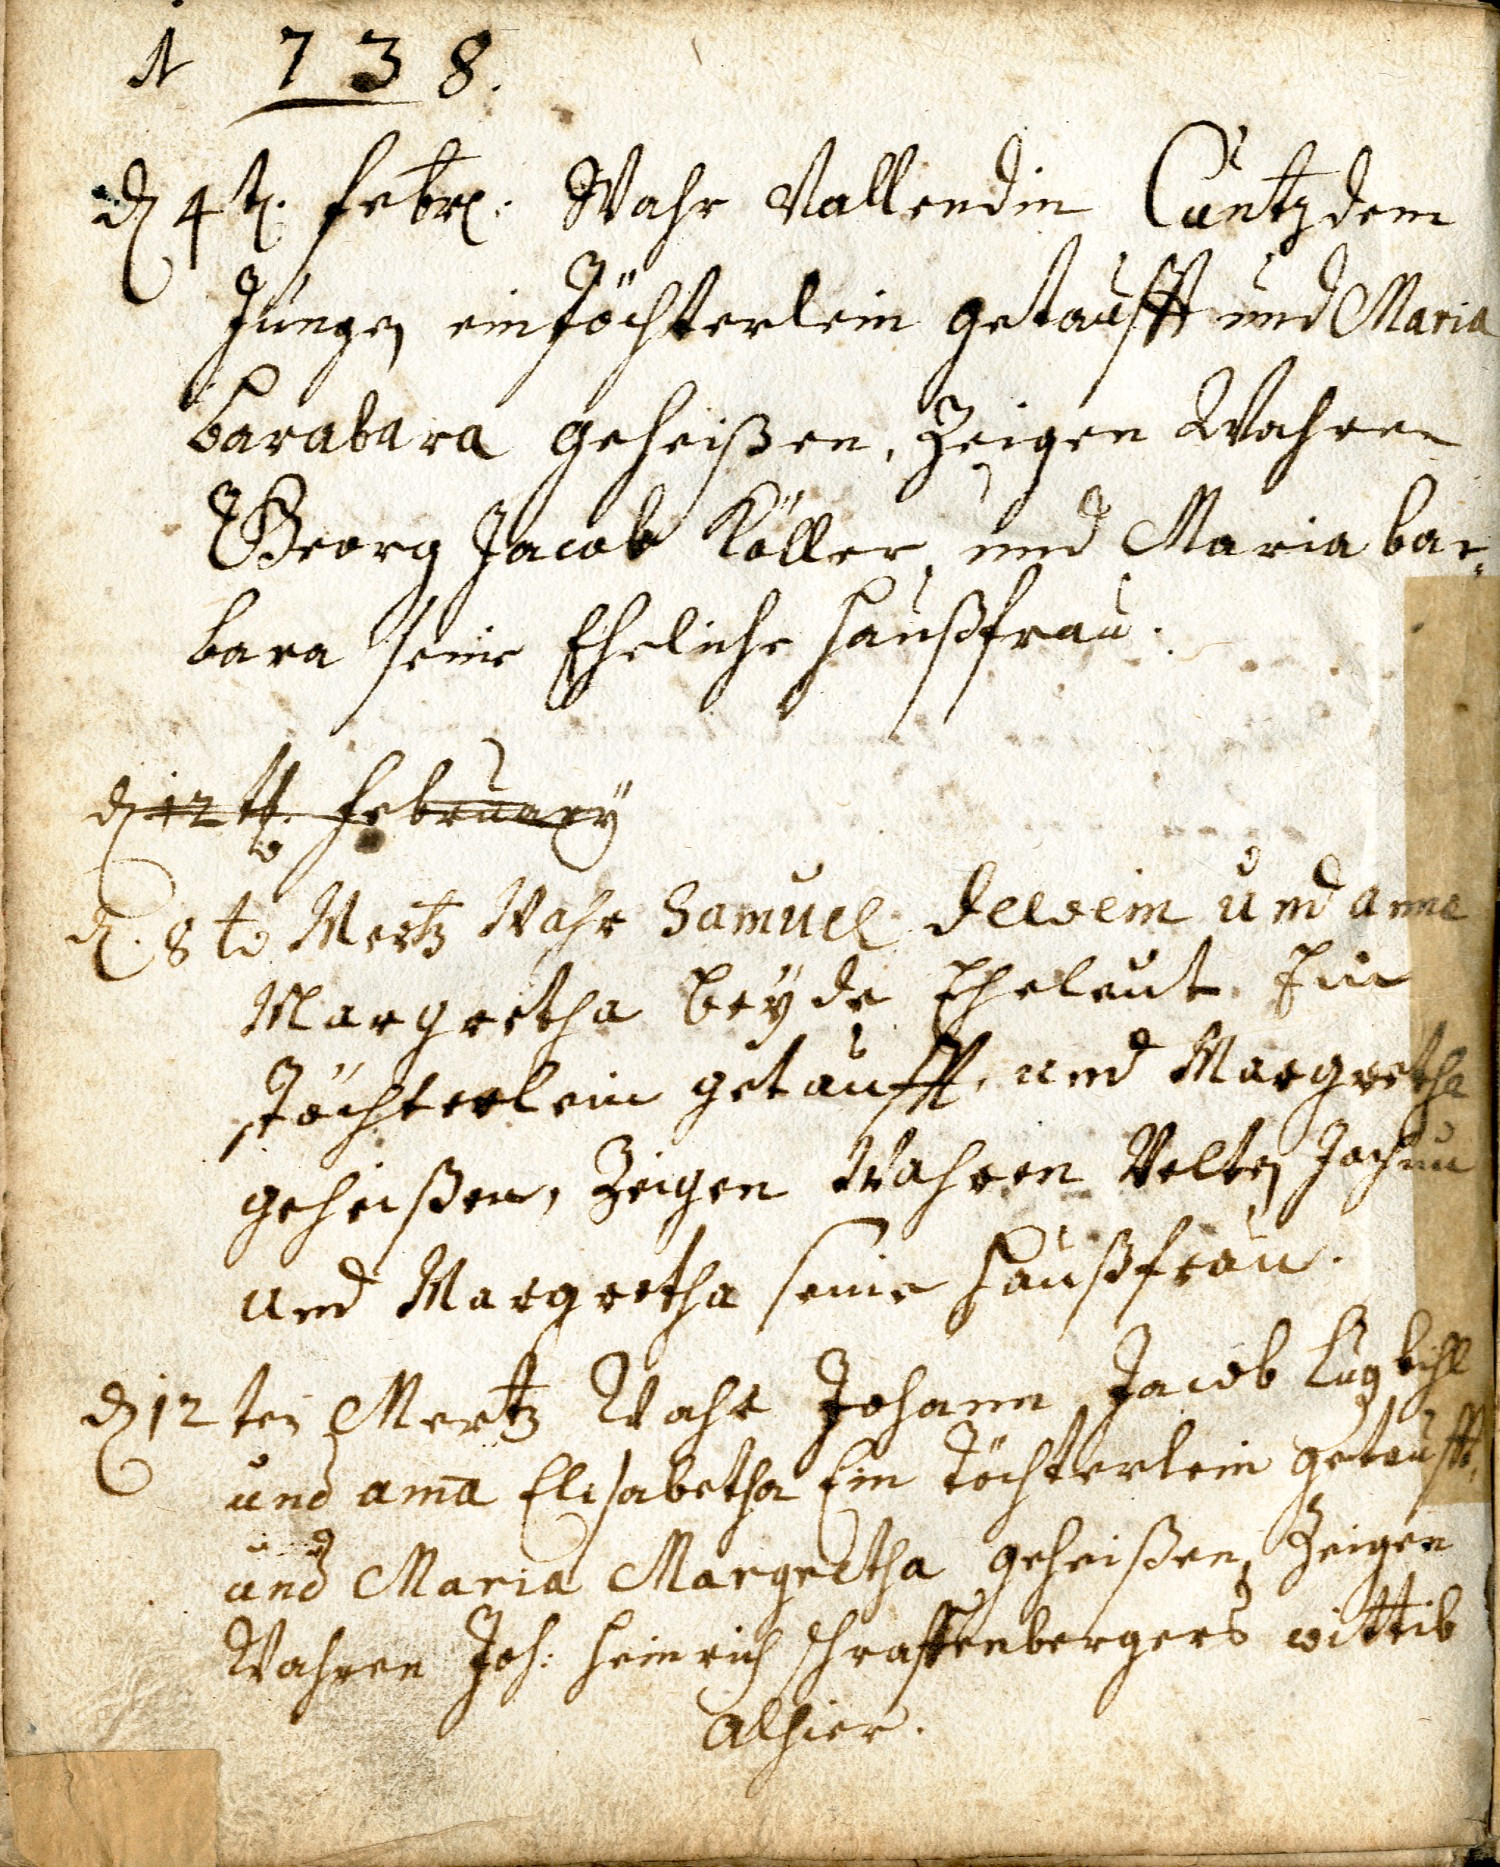 1738.
d 4t. febr: Wahr Vallendin Cuntz dem
Jungen ein Töchterlein getaufft und Maria
barabara geheißen, Zeigen Wahren
Georg Jacob Köller, und Maria bar=
bara seine Eheliche Haußfrau.
d 12tt. february
d. 8to Mertz Wahr Samuel und anna
Margretha beyde Eheleut Ein
Töchterlein getaufft, und Margretha
geheißen, Zeigen Wahren Velten
und Margretha seine Haußfrau.
d 12ten Mertz Wahr Johann Jacob
und anna Elisabetha Ein Töchterlein getaufft,
und Maria Margretha geheißen, Zeigen
Wahren Joh: Heinrich schraffenbergers wittib
alhier.